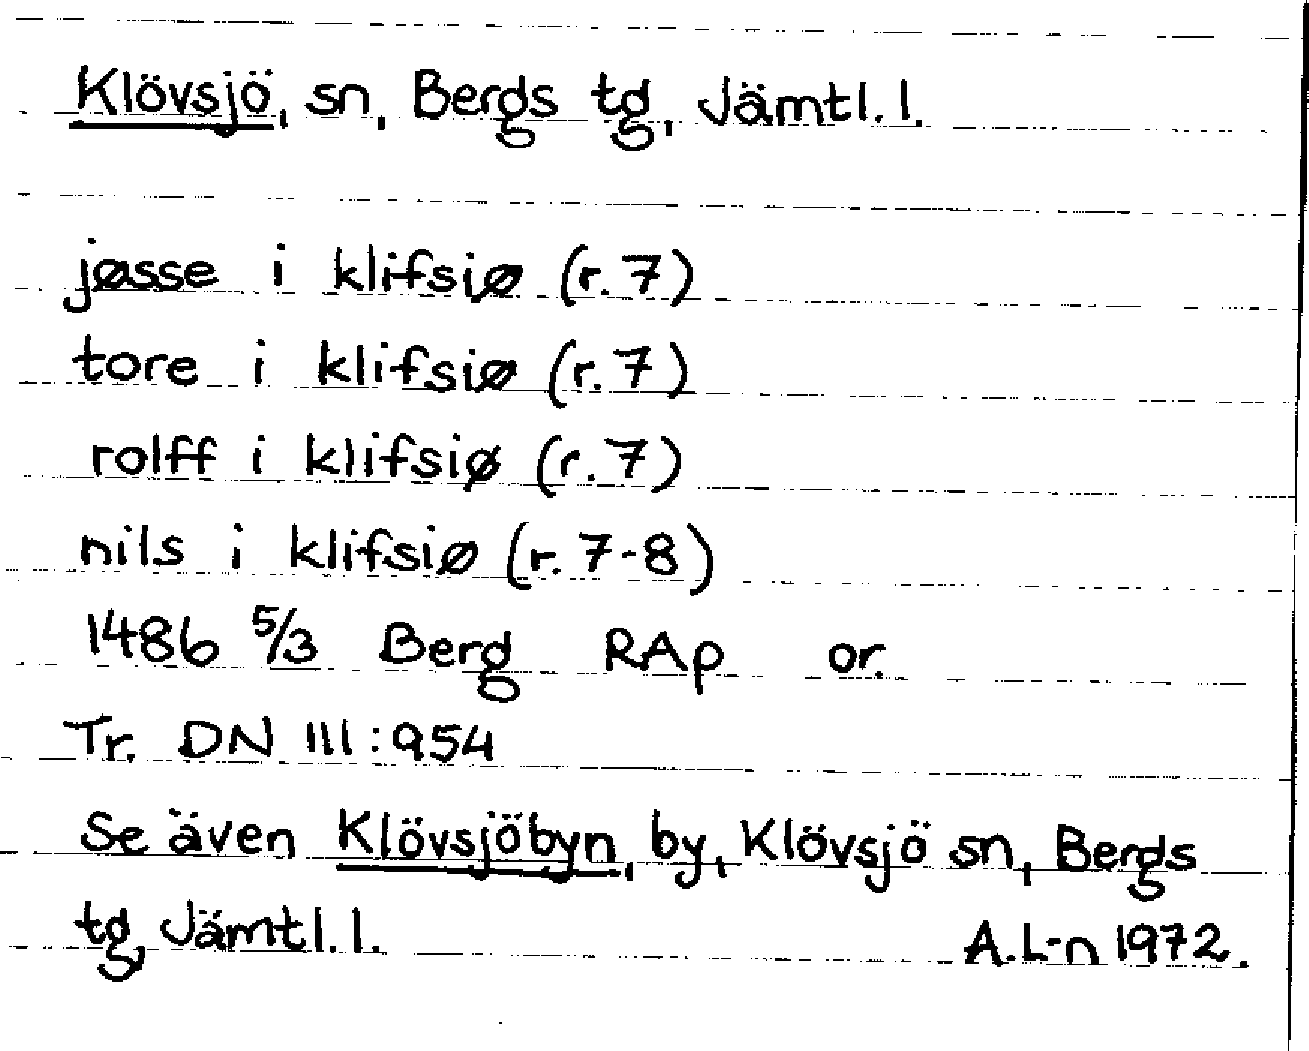 Klövsjö, sn, Bergs tg, Jämtl. l.
jøsse i klifsiø (r. 7)
tore i klifsiø (r. 7)
rolff i klifsiø (r. 7)
nils i klifsiø (r. 7-8)
1486 5/3 Berg RAp or.
Tr. DN III: 954
Se även Klövsjöbyn, by, Klövsjö sn, Bergs
tg, Jämtl. l. A.L-n 1972.